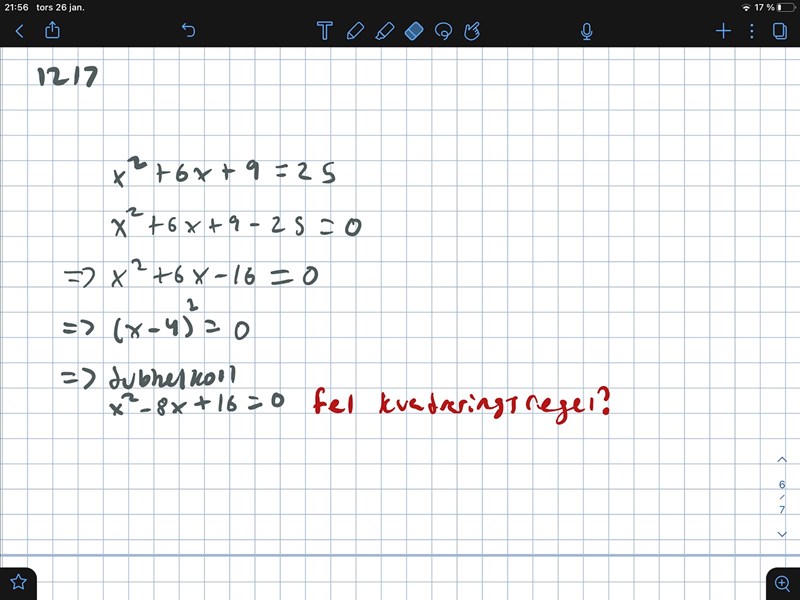 21:56 tors 26 jan.
17 %
T
1217
x² + 6x + 9 = 25
x² + 6x + 9 - 25 = 0
=> x² + 6x - 16 = 0
=> (x - 4)² = 0
=> dubbelkoll
x² - 8x + 16 = 0 fel kvadreringsregel?
6
/
7